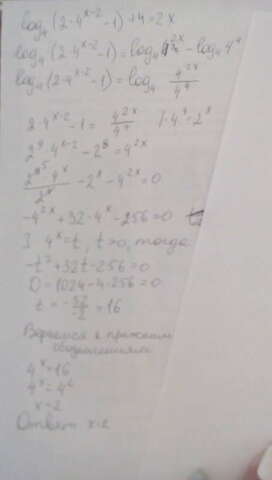 log₄(2·4^(x-2)-1)+4=2x
log₄(2·4^(x-2)-1)=log₄4^(2x)-log₄4⁴
log₄(2·4^(x-2)-1)=log₄ 4^(2x)/4⁴
2·4^(x-2)-1=4^(2x)/4⁴ |·4⁴=2⁸
2⁹·4^(x-2)-2⁸=4^(2x)
-2⁸-4^(2x)=0
-4^(2x)+32·4^x-256=0
4^x=t, t>0, тогда
-t²+32t-256=0
D=1024-4·256=0
t=-32/-2=16
Вернемся к прежним
обозначениям
4^x=16
x=2
Ответ: x=2